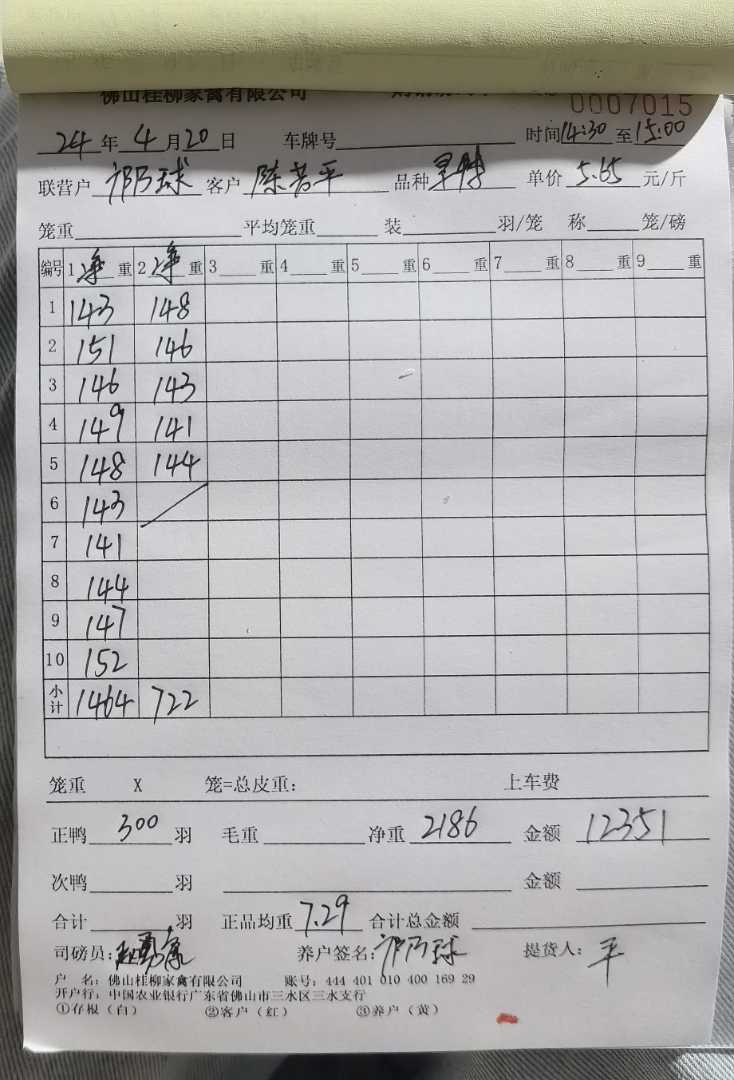 佛山桂柳家禽有限公司 0007015
24 年 4 月 20 日 车牌号 时间 14:30 至 15:00
联营户 邝乃球 客户 陈芳平 品种 早特 单价 5.65 元/斤
笼重 平均笼重 装 羽/笼 称 笼/磅
编号 1 净 重 2 净 重 3 重 4 重 5 重 6 重 7 重 8 重 9 重
1 143 148
2 151 146
3 146 143
4 149 141
5 148 144
6 143
7 141
8 144
9 147
10 152
小计 1464 722
笼重 X 笼=总皮重: 上车费
正鸭 300 羽 毛重 净重 2186 金额 12351
次鸭 羽 金额
合计 羽 正品均重 7.29 合计总金额
司磅员: 养户签名: 邝乃球 提货人: 平
户 名: 佛山桂柳家禽有限公司 账号: 444 401 010 400 169 29
开户行: 中国农业银行广东省佛山市三水区三水支行
①存根(白) ②客户(红) ③养户(黄)